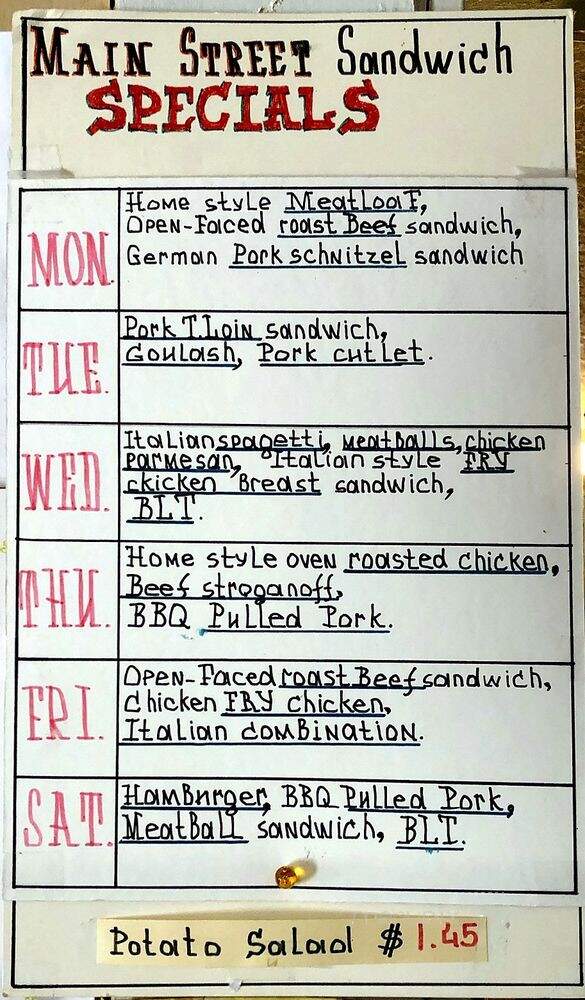 MAIN STREET Sandwich
SPECIALS
MON.
Home style MeatLoaf,
OPEN-Faced roast Beef sandwich,
German Pork schnitzel sandwich
TUE.
Pork T.Loin sandwich,
Goulash, Pork cutlet.
WED.
Italian spagetti, meatballs, chicken
Parmesan, Italian style FRY
ckicken Breast sandwich,
BLT.
THU.
Home style oven roasted chicken,
Beef stroganoff,
BBQ Pulled Pork.
FRI.
OPEN-Faced roast Beef sandwich,
Chicken FRY Chicken,
Italian comBination.
SAT.
HamBurger, BBQ Pulled Pork,
MeatBall sandwich, BLT.
Potato Salad $ 1.45